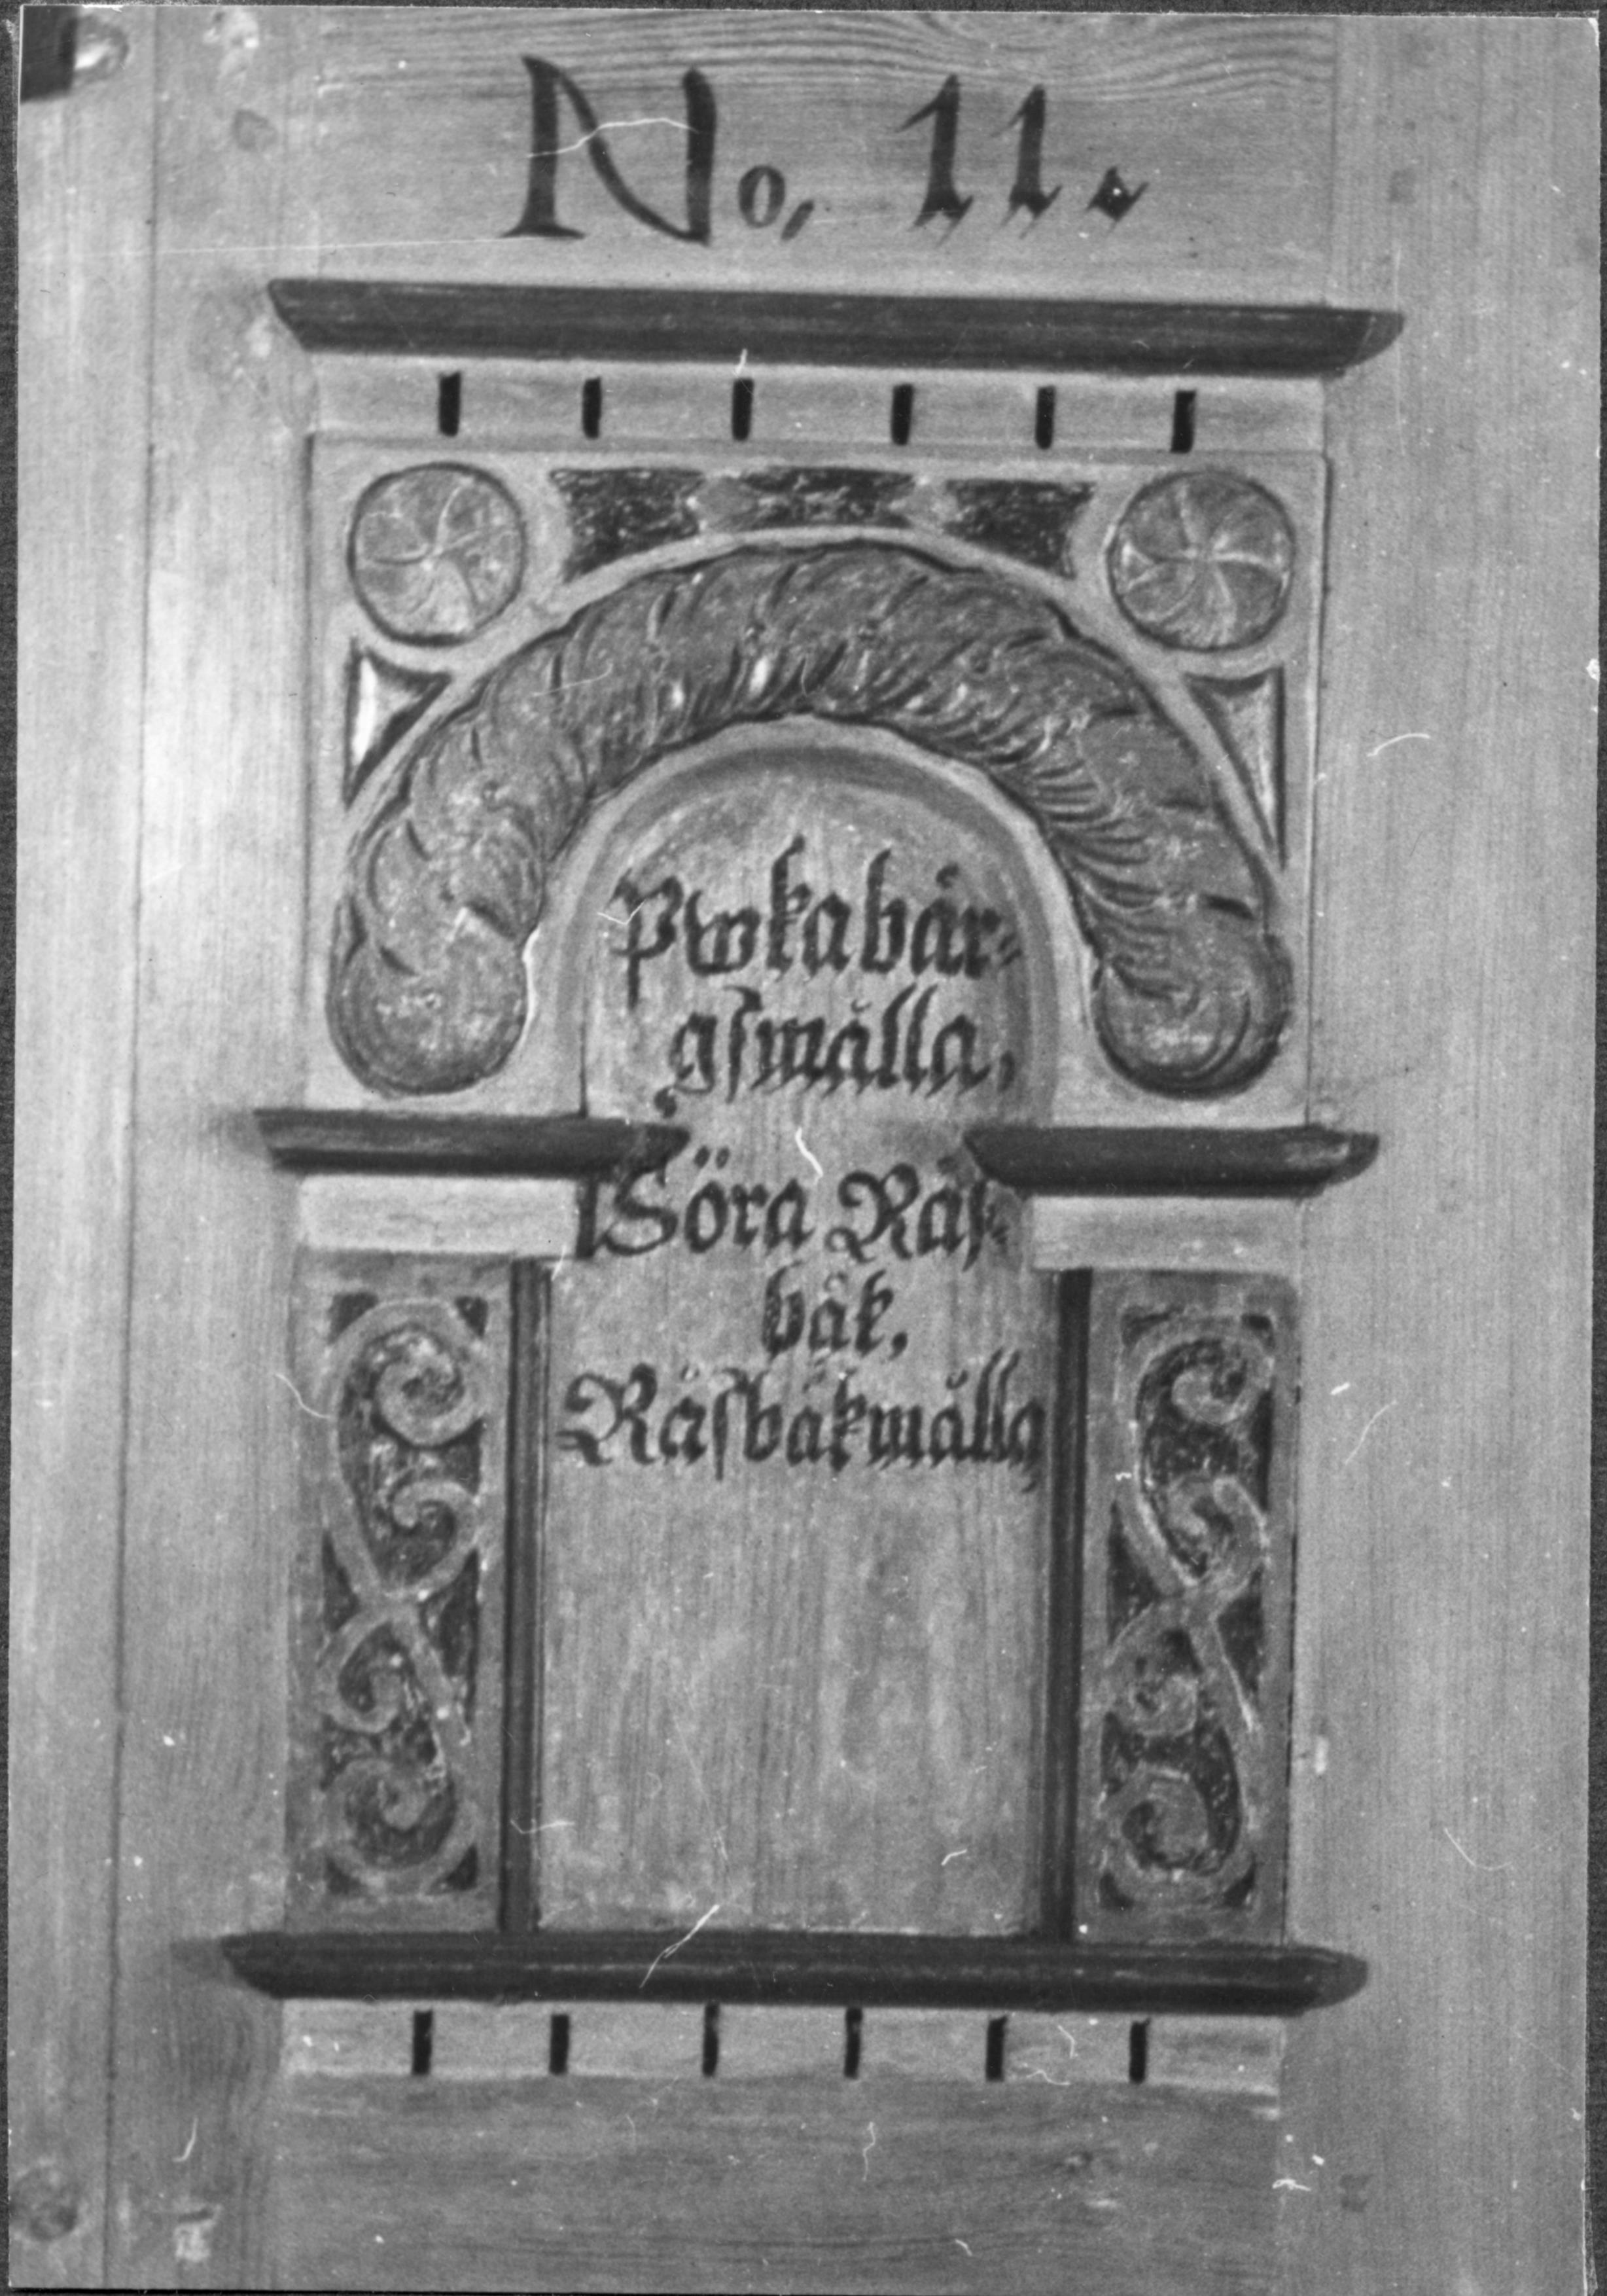 No. 11.
Pwkabär-
gsmålla,
Söra Räf-
bäk,
Räfbäkmålla